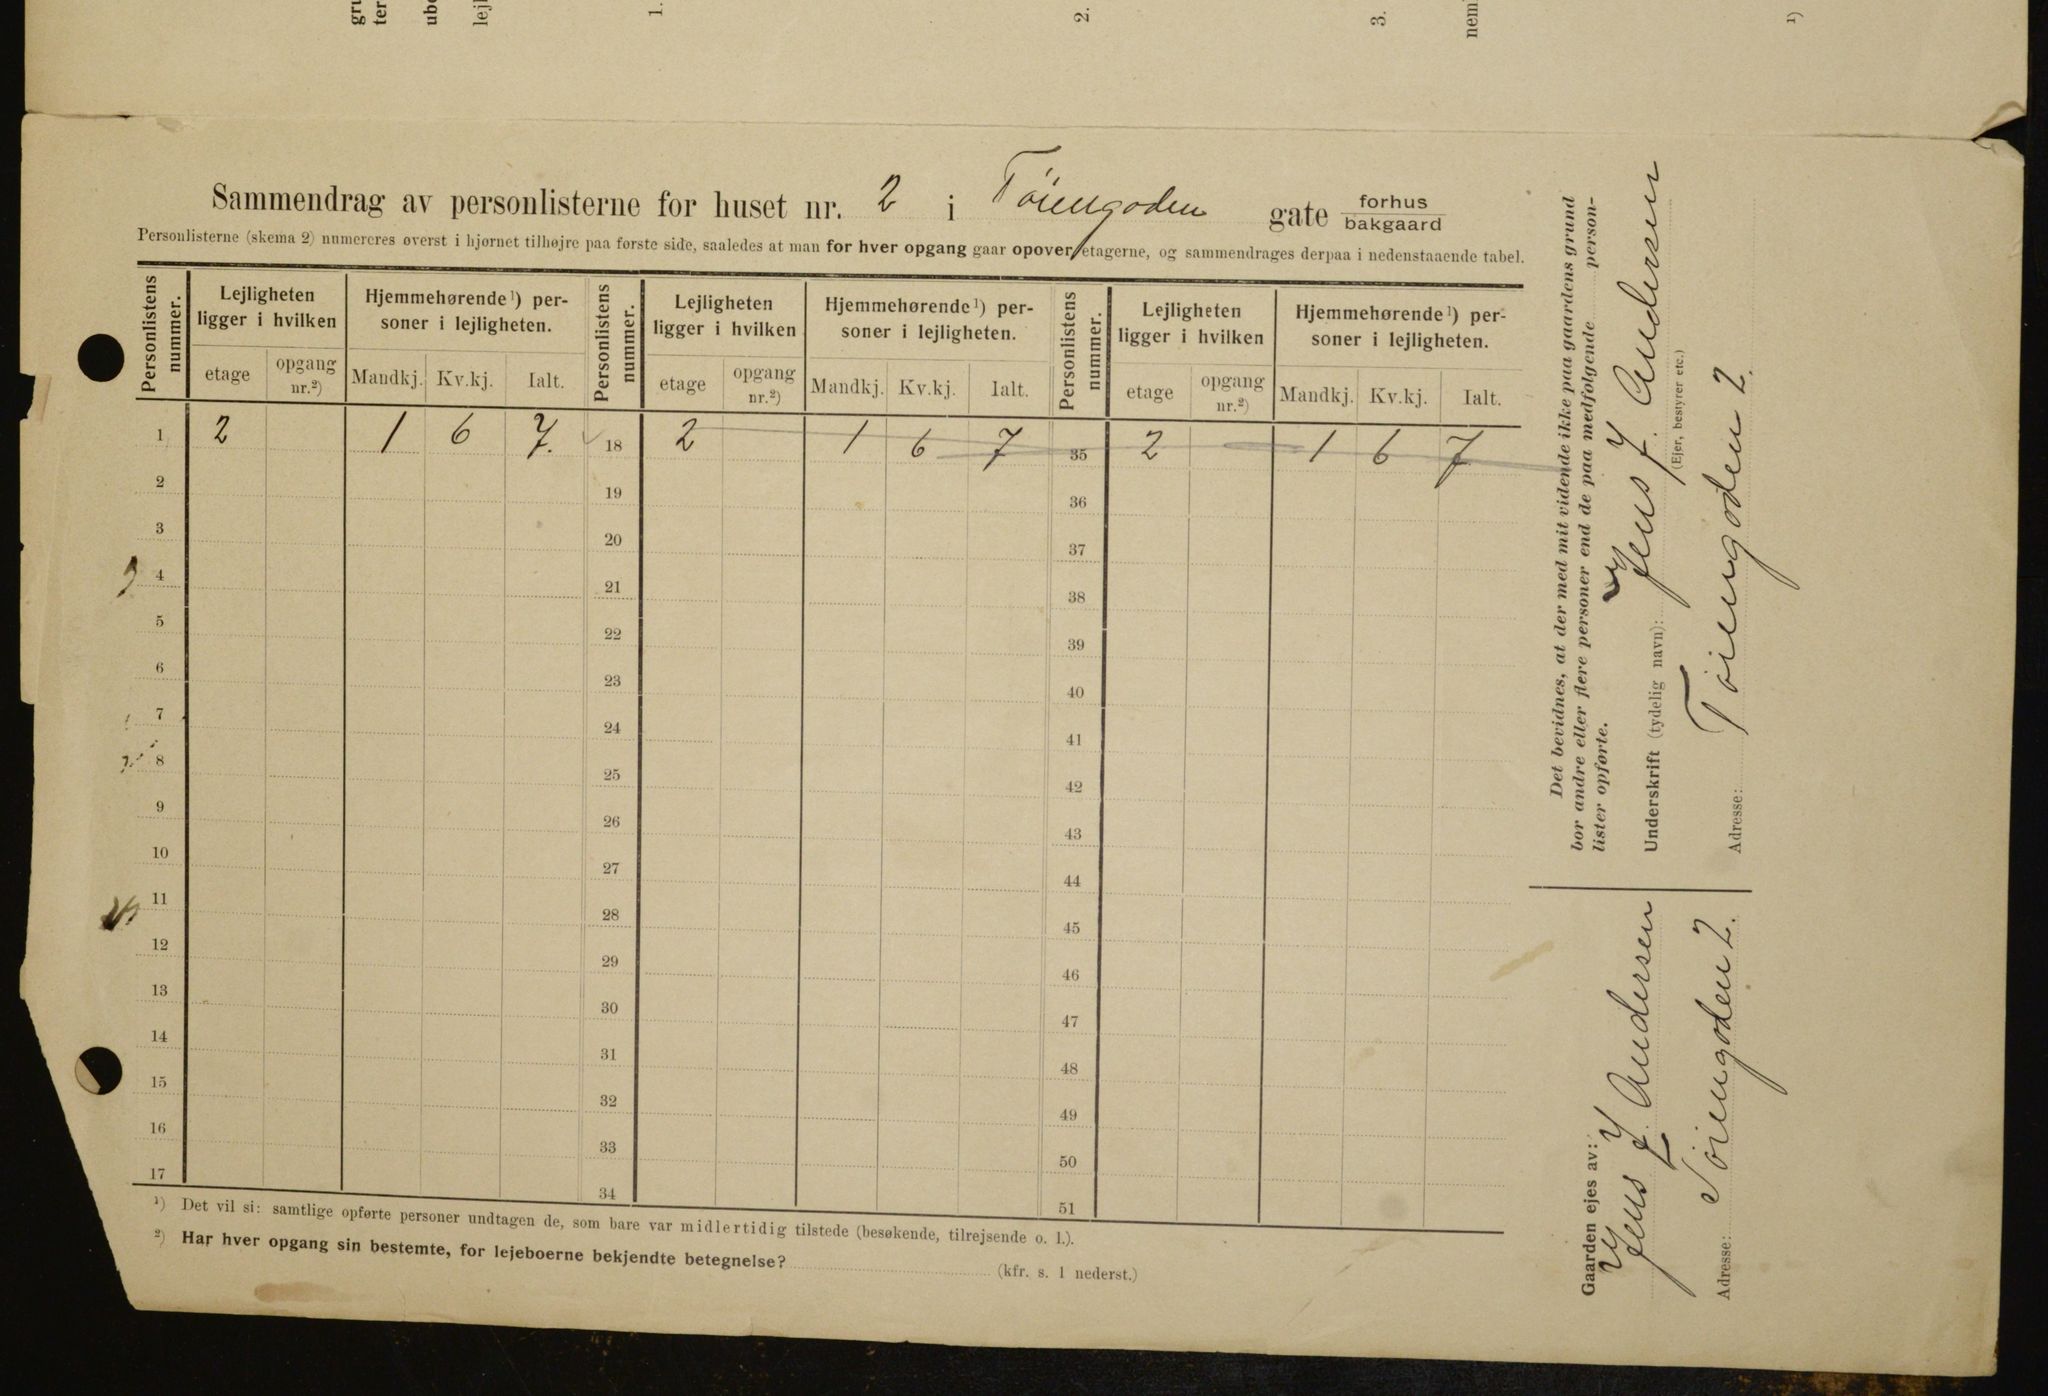 gru
ter
ube
lejl
1.
2.
3.
nem
¹)
Sammendrag av personlisterne for huset nr. 2 i Tøiengoden gate forhus bakgaard
Personlisterne (skema 2) numereres øverst i hjørnet tilhøjre paa første side, saaledes at man for hver opgang gaar opover etagerne, og sammendrages derpaa i nedenstaaende tabel.
Personlistens nummer. Lejligheten ligger i hvilken Hjemmehørende ¹) personer i lejligheten. Personlistens nummer. Lejligheten ligger i hvilken Hjemmehørende ¹) personer i lejligheten. Personlistens nummer. Lejligheten ligger i hvilken Hjemmehørende ¹) personer i lejligheten.
etage opgang nr.²) Mandkj. Kv.kj. Ialt. etage opgang nr.²) Mandkj. Kv.kj. Ialt. etage opgang nr.²) Mandkj. Kv.kj. Ialt.
1 2 1 6 7. 18 2 1 6 7 35 2 1 6 7
2 19 36
3 20 37
4 21 38
5 22 39
6 23 40
7 24 41
8 25 42
9 26 43
10 27 44
11 28 45
12 29 46
13 30 47
14 31 48
15 32 49
16 33 50
17 34 51
¹) Det vil si: samtlige opførte personer undtagen de, som bare var midlertidig tilstede (besøkende, tilrejsende o. l.).
²) Har hver opgang sin bestemte, for lejeboerne bekjendte betegnelse? (kfr. s. 1 nederst.)
Det bevidnes, at der med mit vidende ikke paa gaardens grund
bor andre eller flere personer end de paa medfølgende person-
lister opførte.
Underskrift (tydelig navn): Jens J. Andersen
(Ejer, bestyrer etc.)
Adresse: Tøiengoden 2.
Gaarden ejes av:
Jens J. Andersen
Adresse: Tøiengoden 2.